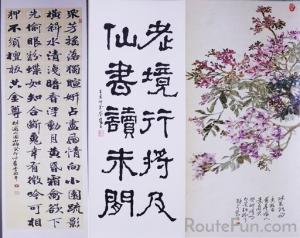 眾芳搖落獨暄妍占盡風情向小園疏影
橫斜水清淺暗香浮動月黃昏霜禽欲下
先偷眼粉蝶如知合斷魂幸有微吟可相
狎不須檀板共金尊
老境行將及
仙書讀未
RouteFun.com